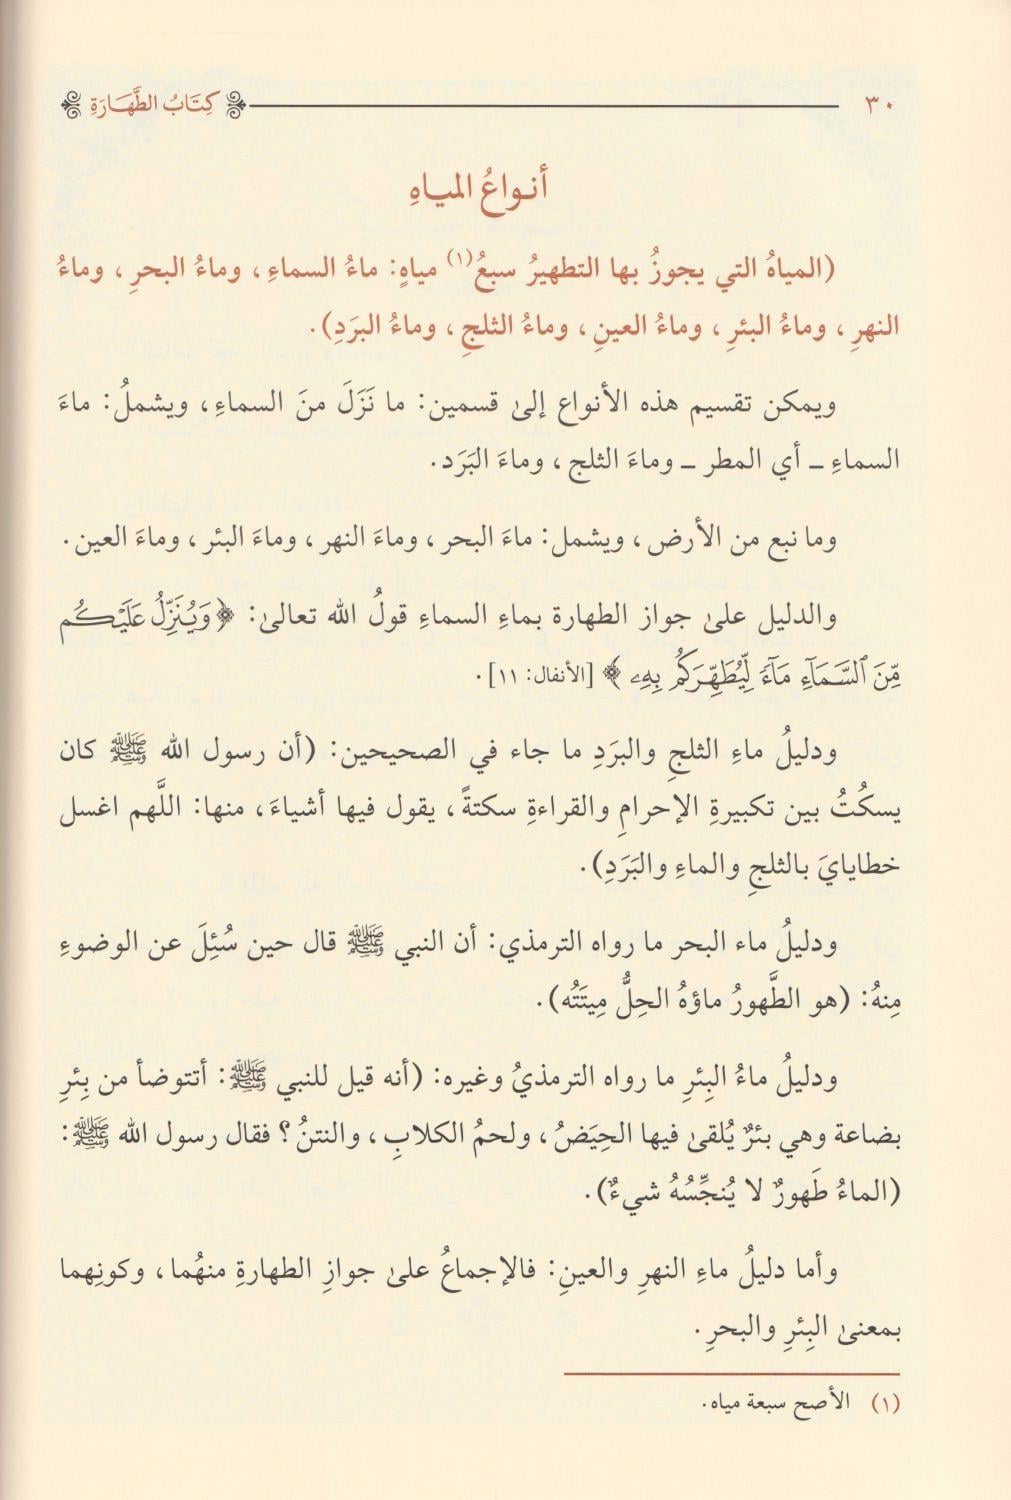 ٣٠ كِتَابُ الطَّهَارَةِ
أنواعُ المياهِ
(المياهُ التي يجوزُ بها التطهيرُ سبعُ(١) مياهٍ: ماءُ السماءِ، وماءُ البحرِ، وماءُ
النهرِ، وماءُ البئرِ، وماءُ العينِ، وماءُ الثلجِ، وماءُ البرَدِ).
ويمكن تقسيم هذه الأنواع إلىٰ قسمين: ما نَزَلَ منَ السماءِ، ويشملُ: ماءَ
السماءِ ـ أي المطر ـ وماءَ الثلج، وماءَ البَرَد.
وما نبع من الأرض، ويشمل: ماءَ البحر، وماءَ النهر، وماءَ البئر، وماءَ العين.
والدليل علىٰ جواز الطهارة بماءِ السماءِ قولُ الله تعالىٰ: ﴿وَيُنَزِّلُ عَلَيْكُم
مِّنَ ٱلسَّمَآءِ مَآءً لِّيُطَهِّرَكُم بِهِۦ﴾ [الأنفال: ١١].
ودليلُ ماءِ الثلجِ والبرَدِ ما جاء في الصحيحين: (أن رسول الله ﷺ كان
يسكُتُ بين تكبيرةِ الإحرامِ والقراءةِ سكتةً، يقول فيها أشياءَ، منها: اللَّهم اغسل
خطايايَ بالثلجِ والماءِ والبَرَدِ).
ودليلُ ماء البحر ما رواه الترمذي: أن النبي ﷺ قال حين سُئِلَ عن الوضوءِ
مِنهُ: (هو الطَّهورُ ماؤهُ الحِلُّ مِيتَتُه).
ودليلُ ماءُ البِئرِ ما رواه الترمذيُ وغيره: (أنه قيل للنبي ﷺ: أتتوضأ من بِئرِ
بضاعة وهي بئرٌ يُلقىٰ فيها الحِيَضُ، ولحمُ الكلابِ، والنتنُ؟ فقال رسول الله ﷺ:
(الماءُ طَهورٌ لا يُنجِّسُهُ شيءٌ).
وأما دليلُ ماءِ النهرِ والعينِ: فالإجماعُ علىٰ جوازِ الطهارةِ منهُما، وكونِهما
بمعنىٰ البِئرِ والبحرِ.
(١) الأصح سبعة مياه.